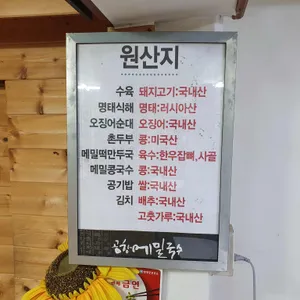 원산지
수육 돼지고기:국내산
명태식해 명태:러시아산
오징어순대 오징어:국내산
촌두부 콩:미국산
메밀떡만두국 육수:한우잡뼈,사골
메밀콩국수 콩:국내산
공기밥 쌀:국내산
김치 배추:국내산
고춧가루:국내산
공항메밀국수
금연